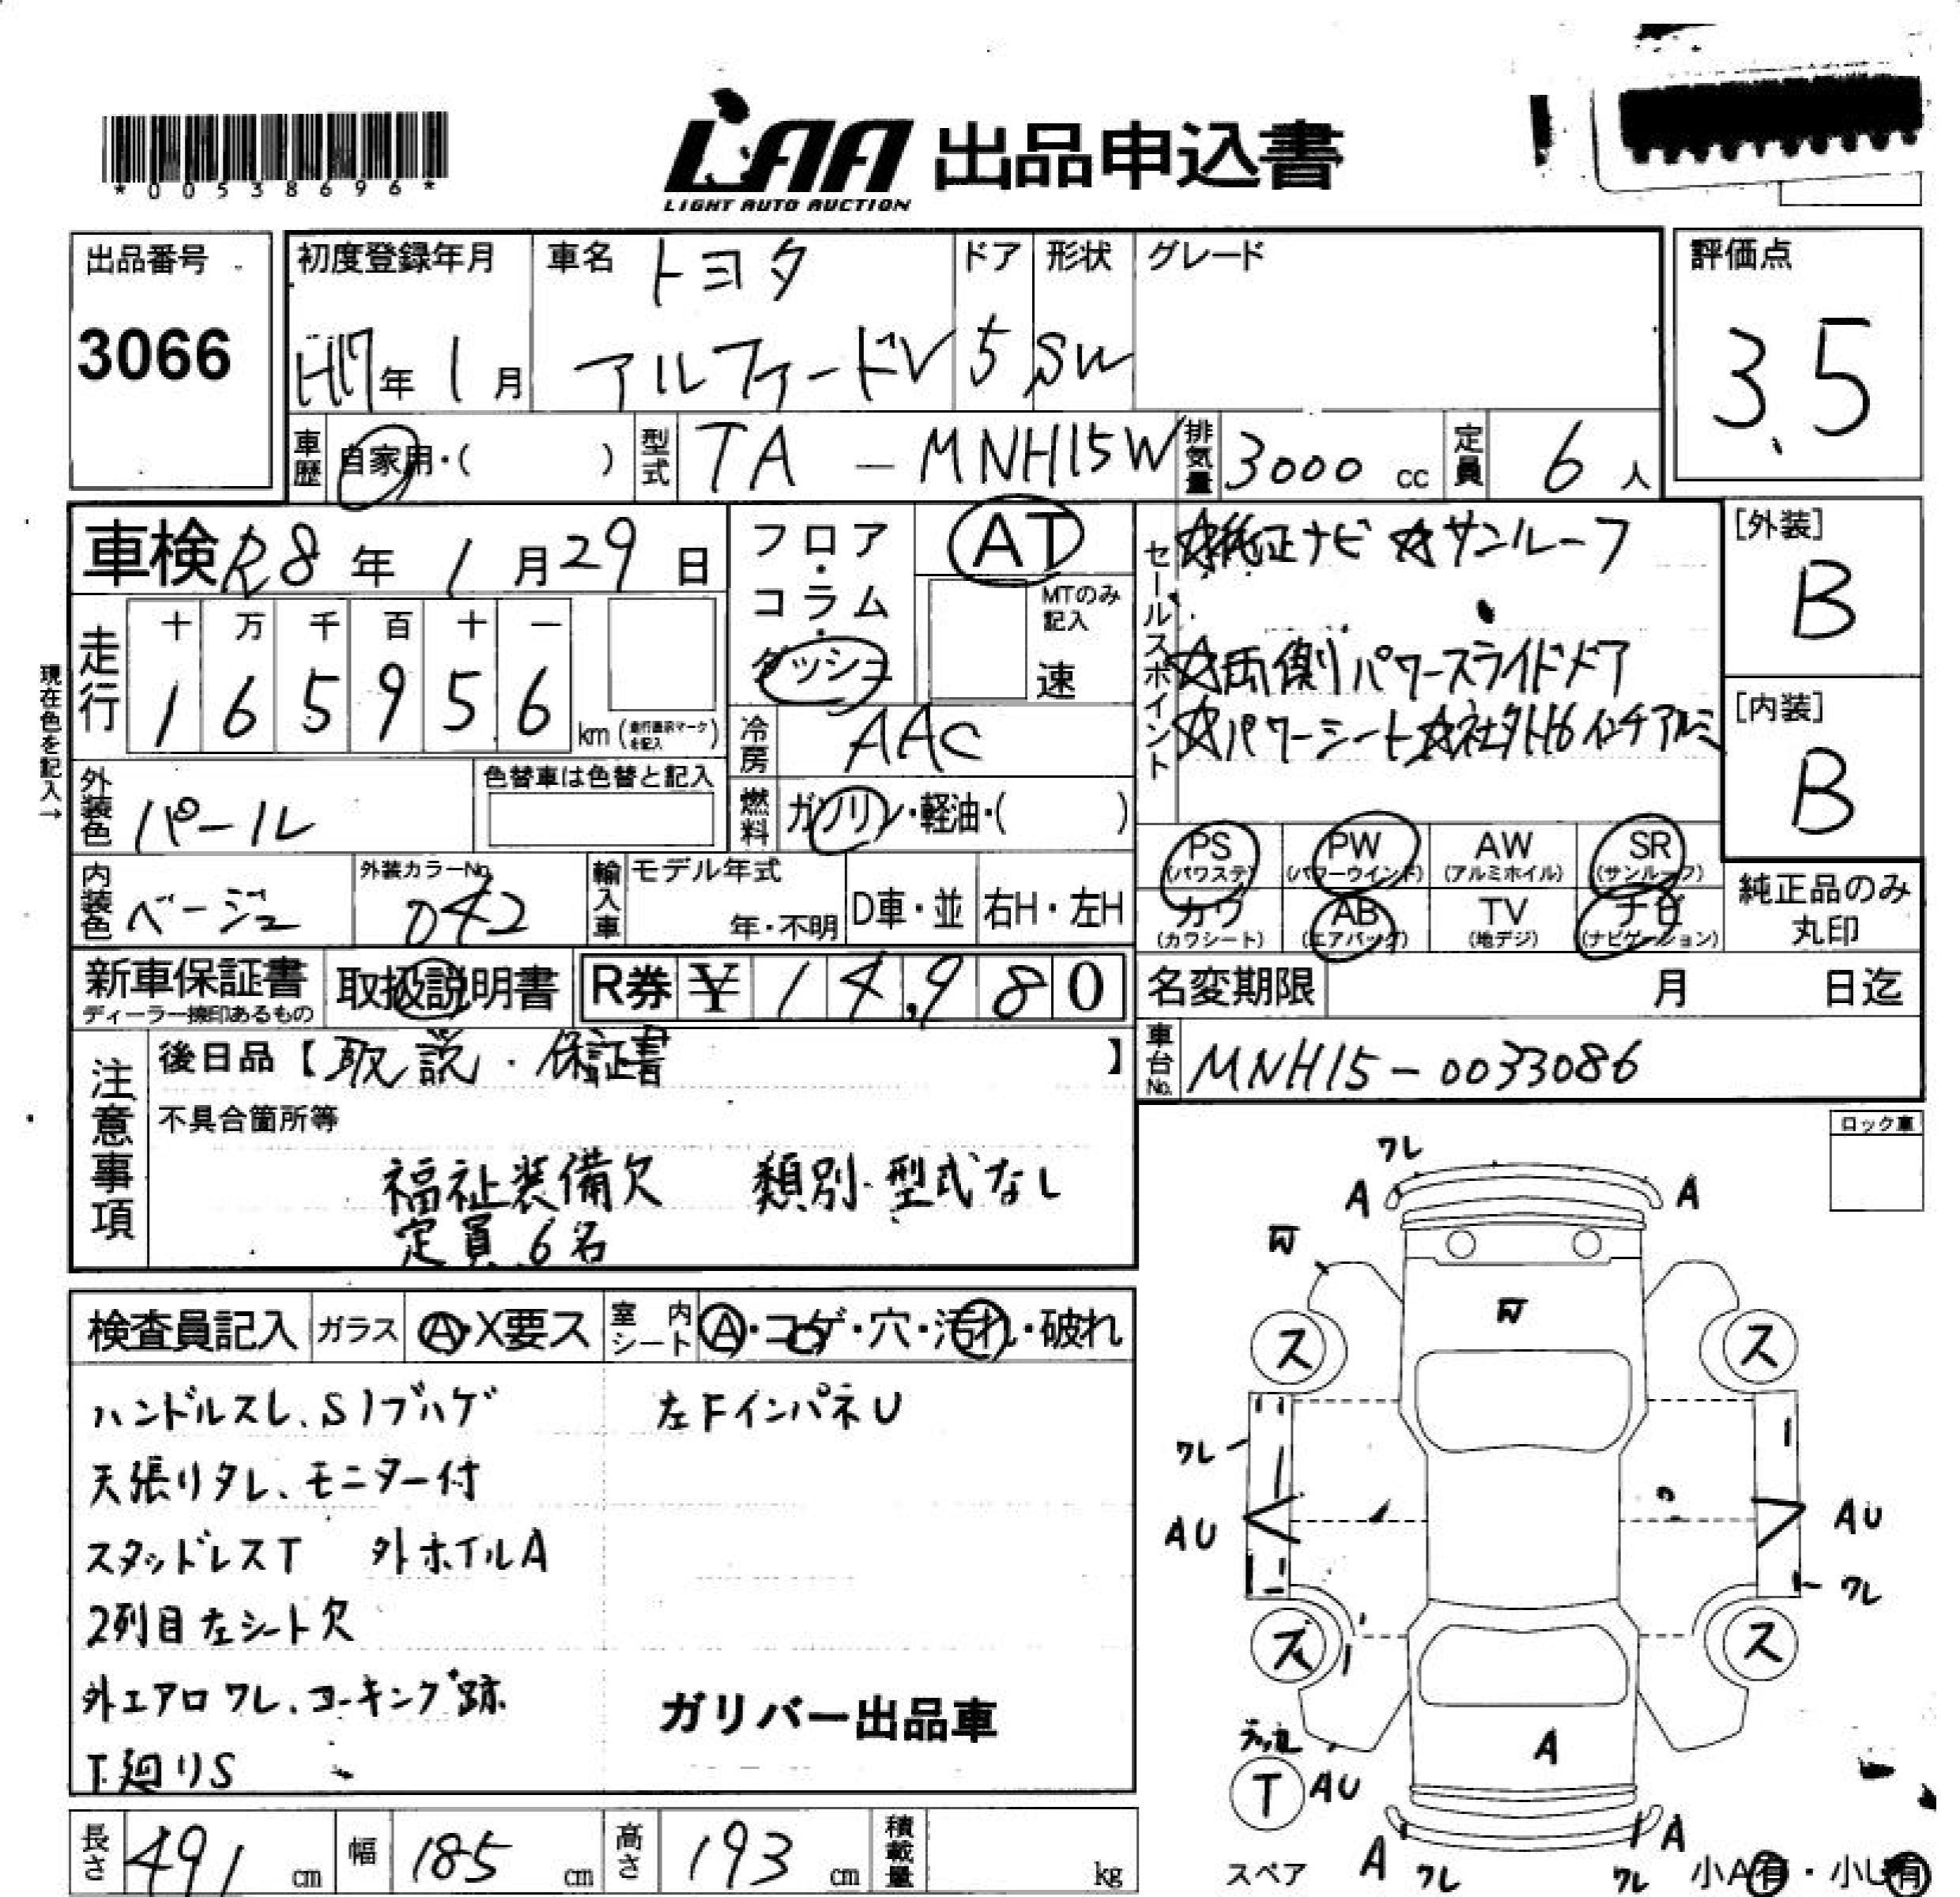 *00538696*
LAA 出品申込書
LIGHT AUTO AUCTION
出品番号
3066
初度登録年月
H17年1月
車名 トヨタ
アルファードV
ドア
5
形状
SW
グレード
評価点
3.5
車歴 自家用・( )
型式 TA-MNH15W
排気量 3000 cc
定員 6人
車検 R8年1月29日
フロア・コラム・ダッシュ
AT
MTのみ記入
速
セールスポイント
☆純正ナビ ☆サンルーフ
☆両側パワースライドドア
☆パワーシート ☆社外16インチアルミ
[外装]
B
[内装]
B
現在色を記入→
走行
十 万 千 百 十 一
1 6 5 9 5 6 km (走行表示マークを記入)
冷房 AAC
外装色 パール
色替車は色替と記入
燃料 ガソリン・軽油・( )
内装色 ベージュ
外装カラーNo. 042
輸入車 モデル年式
年・不明
D車・並
右H・左H
PS (パワステ)
PW (パワーウインド)
AW (アルミホイル)
SR (サンルーフ)
カワ (カワシート)
AB (エアバッグ)
TV (地デジ)
ナビ (ナビゲーション)
純正品のみ
丸印
新車保証書
ディーラー捺印あるもの
取扱説明書
R券 ¥ 14,980
名変期限 月 日迄
車台No. MNH15-0033086
注意事項
後日品【取説・保証書 】
不具合箇所等
福祉装備欠 類別・型式なし
定員6名
ロック車
検査員記入
ガラス A・X要ス
室内シート A・コゲ・穴・汚れ・破れ
ハンドルスレ、Sノブハゲ
左FインパネU
天張りタレ、モニター付
スタッドレスT 外ホイルA
2列目左シート欠
外エアロワレ、コーキング跡
ガリバー出品車
T廻りS
ワレ
A
A
W
W
ス
ス
ワレ
AU
AU
ワレ
ス
ス
A
T
AU
スペア
A
ワレ
ワレ
A
小A有・小U有
長さ 491 cm
幅 185 cm
高さ 193 cm
積載量 kg